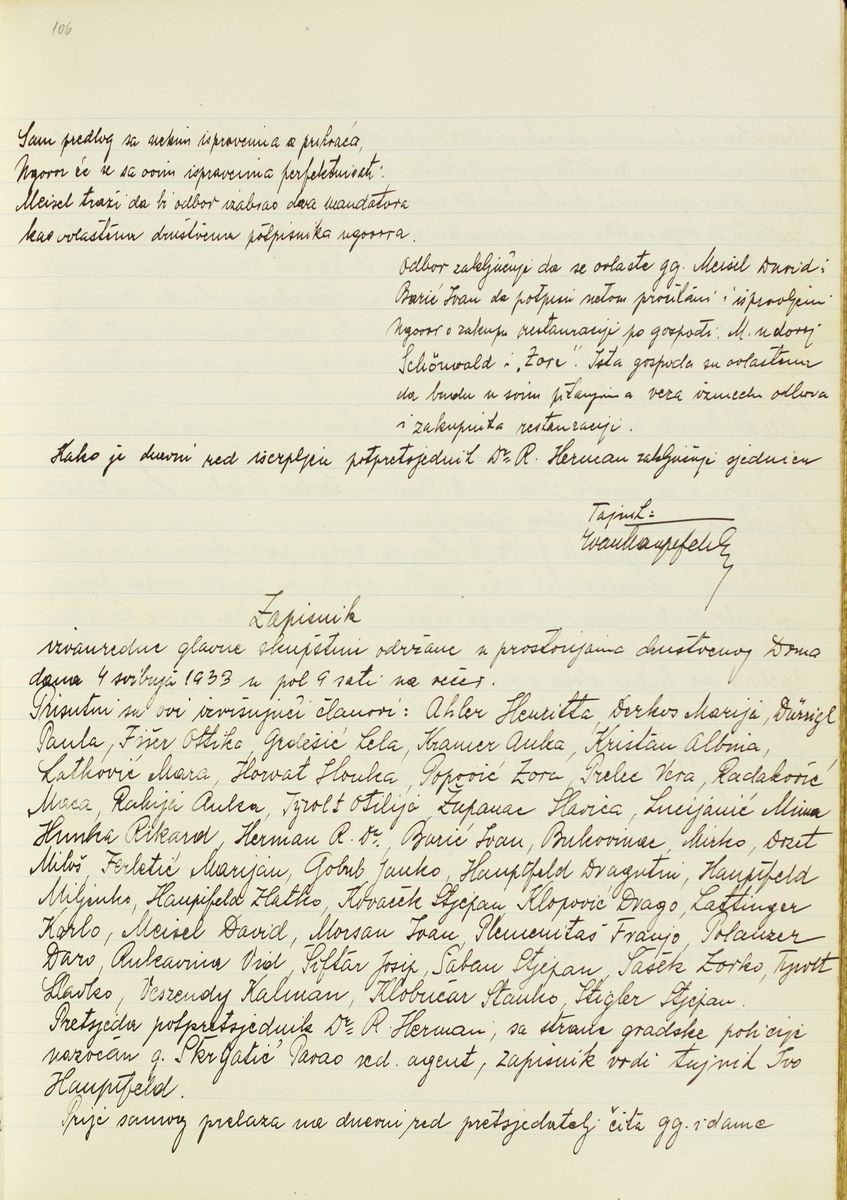 106
Sam predlog sa nekim ispravcima se prihvaća,
Ugovor će se sa ovim ispravcima perfektuisati.
Meisel traži da bi odbor izabrao dva mandatora
kao ovlaštene društvene potpisnika ugovora.
Odbor zaključuje da se ovlaste gg. Meisel David i
Barić Ivan da potpišu netom pročitani i ispravljeni
Ugovor o zakupu restauracije po gospođi M. udovoj
Schönwald i „Zore". Ista gospoda su ovlaštena
da budu u svim pitanjima veza između odbora
i zakupnika restauracije.
Kako je dnevni red iscrpljen potpretsjednik Dr. R. Herman zaključuje sjednicu
Tajnik:
Ivan Hauptfeld
Zapisnik
izvanredne glavne skupštine održane u prostorijama društvenog Doma
dana 4 svibnja 1933 u pol 9 sati na večer.
Prisutni su ovi izvršujući članovi: Ahler Henritta, Derkos Marija, Dürrigl
Paula, Fišer Ottika, Grdešić Lela, Kramer Anka, Kristan Albina,
Latković Mara, Horvat Ilonka, Popović Zora, Prelec Vera, Radaković
Maca, Rakija Anka, Tyrolt Otilija Županac Slavica, Lucijanić Mima
Hunka Rikard, Herman R. Dr., Barić Ivan, Bukovinac, Mirko, Dozet
Miloš, Ferletić Marijan, Golub Janko, Hauptfeld Dragutin, Hauptfeld
Miljenko, Hauptfeld Zlatko, Kovaček Stjepan, Klopović Drago, Lattinger
Karlo, Meisel David, Morsan Ivan, Plemenitaš Franjo, Polanzer
Daro, Rukavina Vid, Šiftar Josip, Šaban Stjepan, Sašek Zorko, Tyrolt
Slavko, Veszendy Kalman, Klobučar Stanko, Stigler Stjepan.
Pretsjeda potpretsjednik Dr. R. Herman, sa strane gradske policije
nazočan g. Škrtjatić Pavao red. agent, zapisnik vodi tajnik Ivo
Hauptfeld.
Prije samog prelaza na dnevni red pretsjedatelj čita gg. i dame